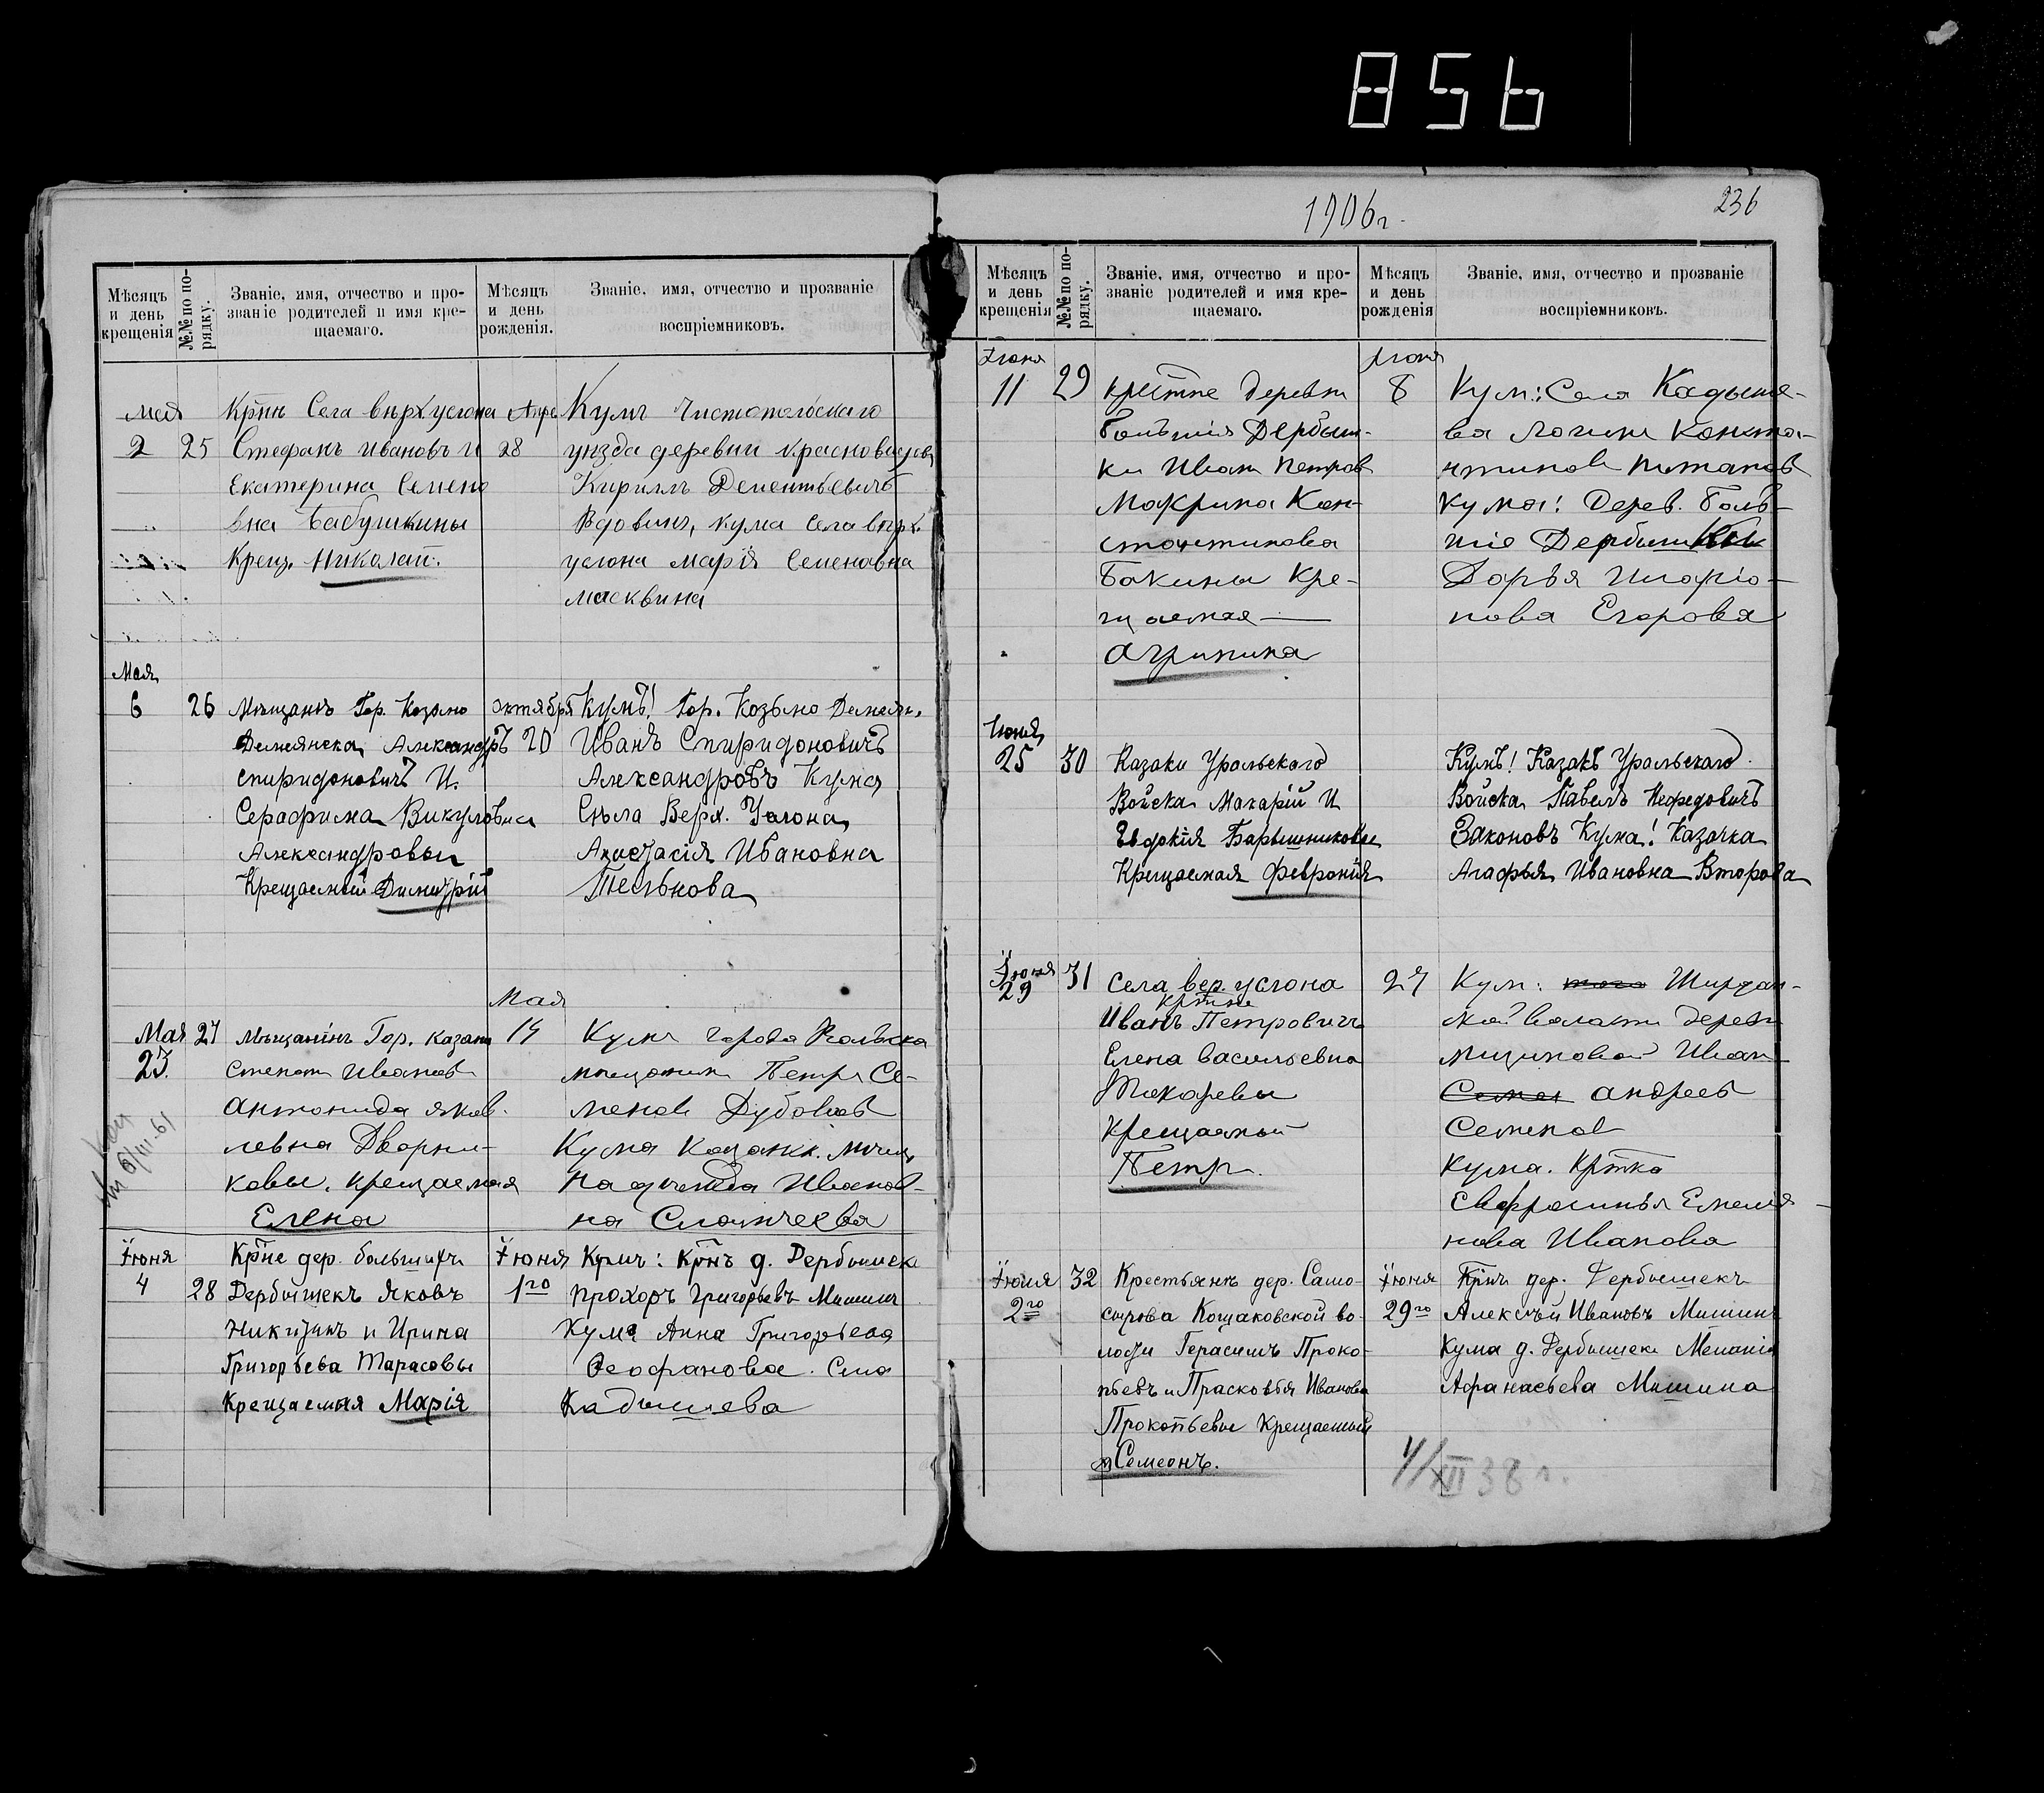 856
1906г.
236
Мѣсяцъ и день крещенія
№№ по порядку.
Званіе, имя, отчество и про-
званіе родителей и имя кре-
щаемаго.
Мѣсяцъ и день рожденія.
Званіе, имя, отчество и прозваніе
воспріемниковъ.
мая
2
25
Крнъ Села верхуслона
Стефанъ Ивановъ И
Екатерина Семено
вна Бабушкины
Крещ. Николай.
Апре
28
Кумъ Чистопольскаго
уѣзда деревни
Кириллъ Дементьевичъ
Вдовинъ, кума села верх.
услона Марія Семеновна
Масквина
Мая
6
26
Мѣщанинъ Гор. Козьмо
Демьянска Александръ
Спиридоновичъ И.
Серафима Викуловна
Александровы
Крещаемый Димитрій
октября
20
Кумъ! Гор. Козьмо Демьян.
Иванъ Спиридоновичъ
Александровъ Кума
Сѣла Верх. Услона
Анастасія Ивановна
Тельнова
Мая
23.
27
Мѣщанинъ Гор. Казани
Степан Иванов
Антонида Яков-
левна Дворни-
ковы. Крещаемая
Елена
Мая
14
Кумъ города Вольска
мещанин Петръ Се-
менов Дубовов
Кума Казанск. мещ.
Надежда Иванов-
на
Іюня
4
28
Крне дер. большихъ
Дербышекъ Яковъ
Никитинъ и Ирина
Григорьева Тарасовы
Крещаемая Марія
Іюня
1го
Кумъ: Крнъ д. Дербышек
Прохоръ Григорьевъ Мишинъ
Кума Анна Григорьева
Феофановае. Села
Кадышева
Мѣсяцъ и день крещенія
№№ по порядку.
Званіе, имя, отчество и про-
званіе родителей и имя кре-
щаемаго.
Мѣсяцъ и день рожденія
Званіе, имя, отчество и прозваніе
воспріемниковъ.
Іюня
11
29
крестне деревни
Большія Дербыш-
ки Иван Петров
Макрина Кон-
стантинова
Бакины Кре-
щаемая
Агрипина
Іюня
8
Кум: Села Кадыше-
ва Логин Конста-
нтинов Потапов
кума: Дерев. Боль-
шіе Дербышки
Дарья Иларіо-
нова Егорова
Іюня
25
30
Казаки Уральского
Войска Макарій И
Евдокія Барышниковы
Крещаемая Февронія
Кумъ! Казакъ Уральскаго
Войска Павелъ Нефедовичъ
Законовъ Кума! Казачка
Агафья Ивановна Второва
Іюня
29
31
Села вер. услона
кртне
Иванъ Петровичъ
Елена Васильевна
Токаревы
Крещаемый
Петръ.
27
Кум: того Ширдан-
ской волости дерев.
Иван
Семен Андреев
Семенов
Кума. Кртка
Евфросинья Емелья-
нова Иванова
Іюля
2го
32
Крестьянъ дер. Само-
сырова Кощаковской во-
лости Герасимъ Проко-
пьевъ и Прасковья Иванова
Прокопьевы Крещаемый
Семеонъ.
Іюня
29го
Крнъ дер. Дербышекъ
Алексѣй Ивановъ Мишинъ
Кума д. Дербышек Меланія
Афанасьева Мишина
4/XII 38 г.